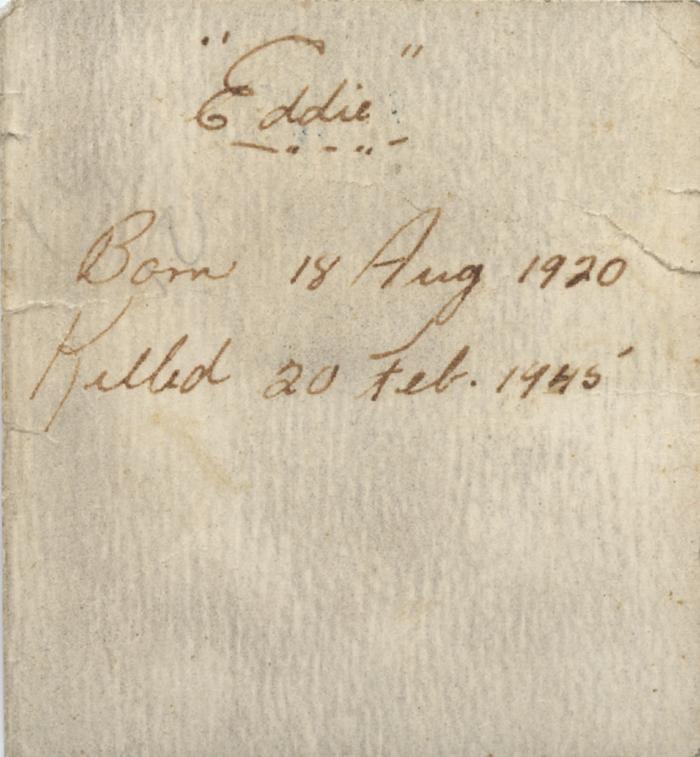 "Eddie"
Born 18 Aug 1920
Killed 20 Feb. 1945